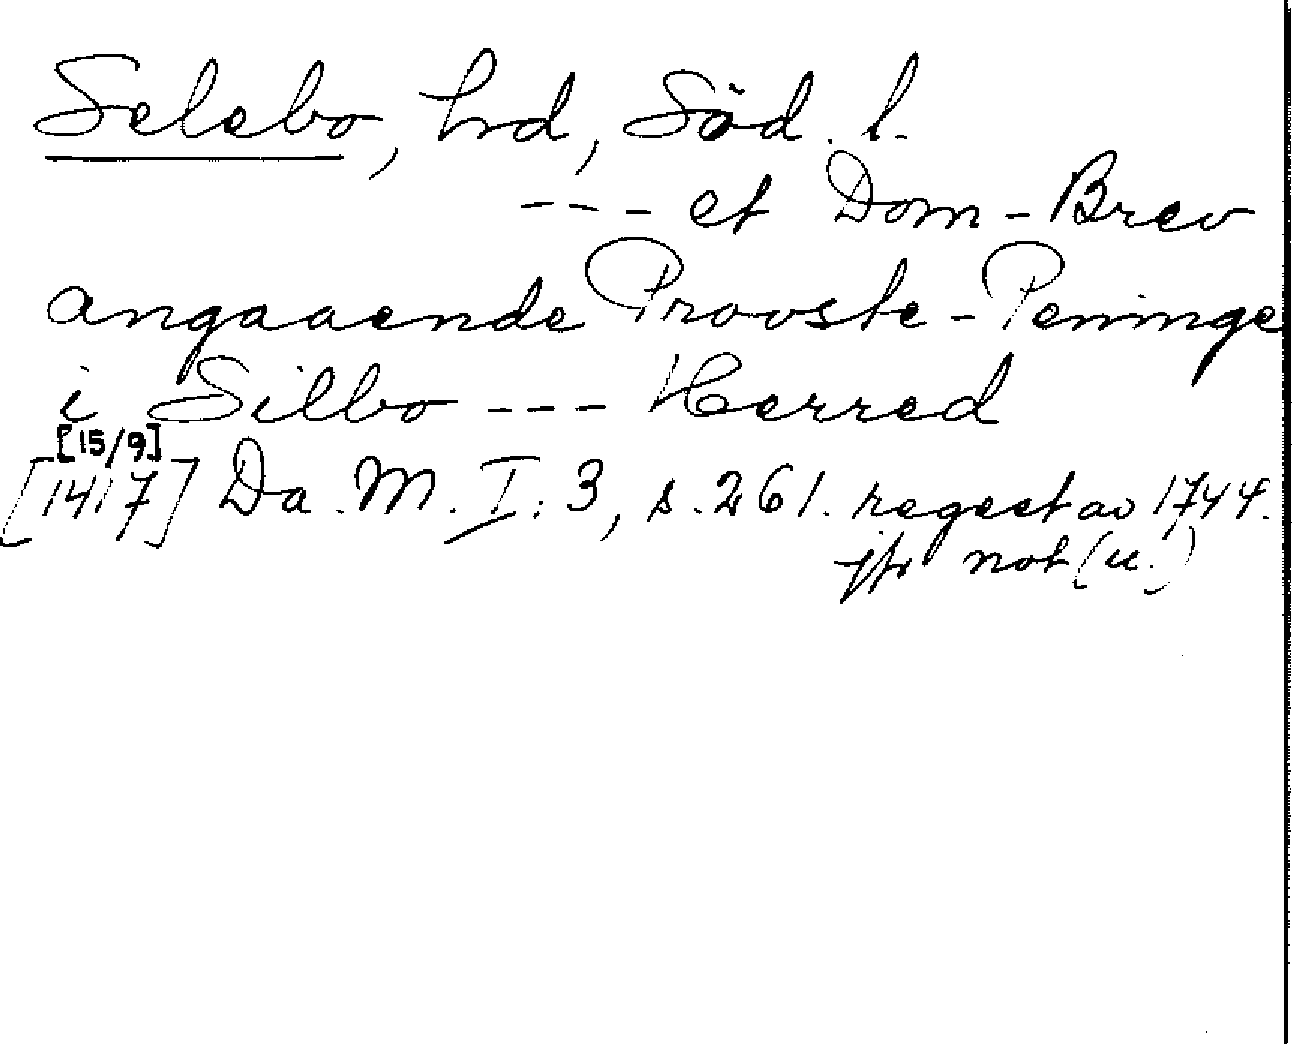 Selebo, hrd, Söd. l.
--- et Dom-Brev
angaaende Provste-Peninge
i Silbo --- Herred
[15/9]
[1417] Da. M. I: 3, s. 261. regest av 1744.
jfr not (u.)